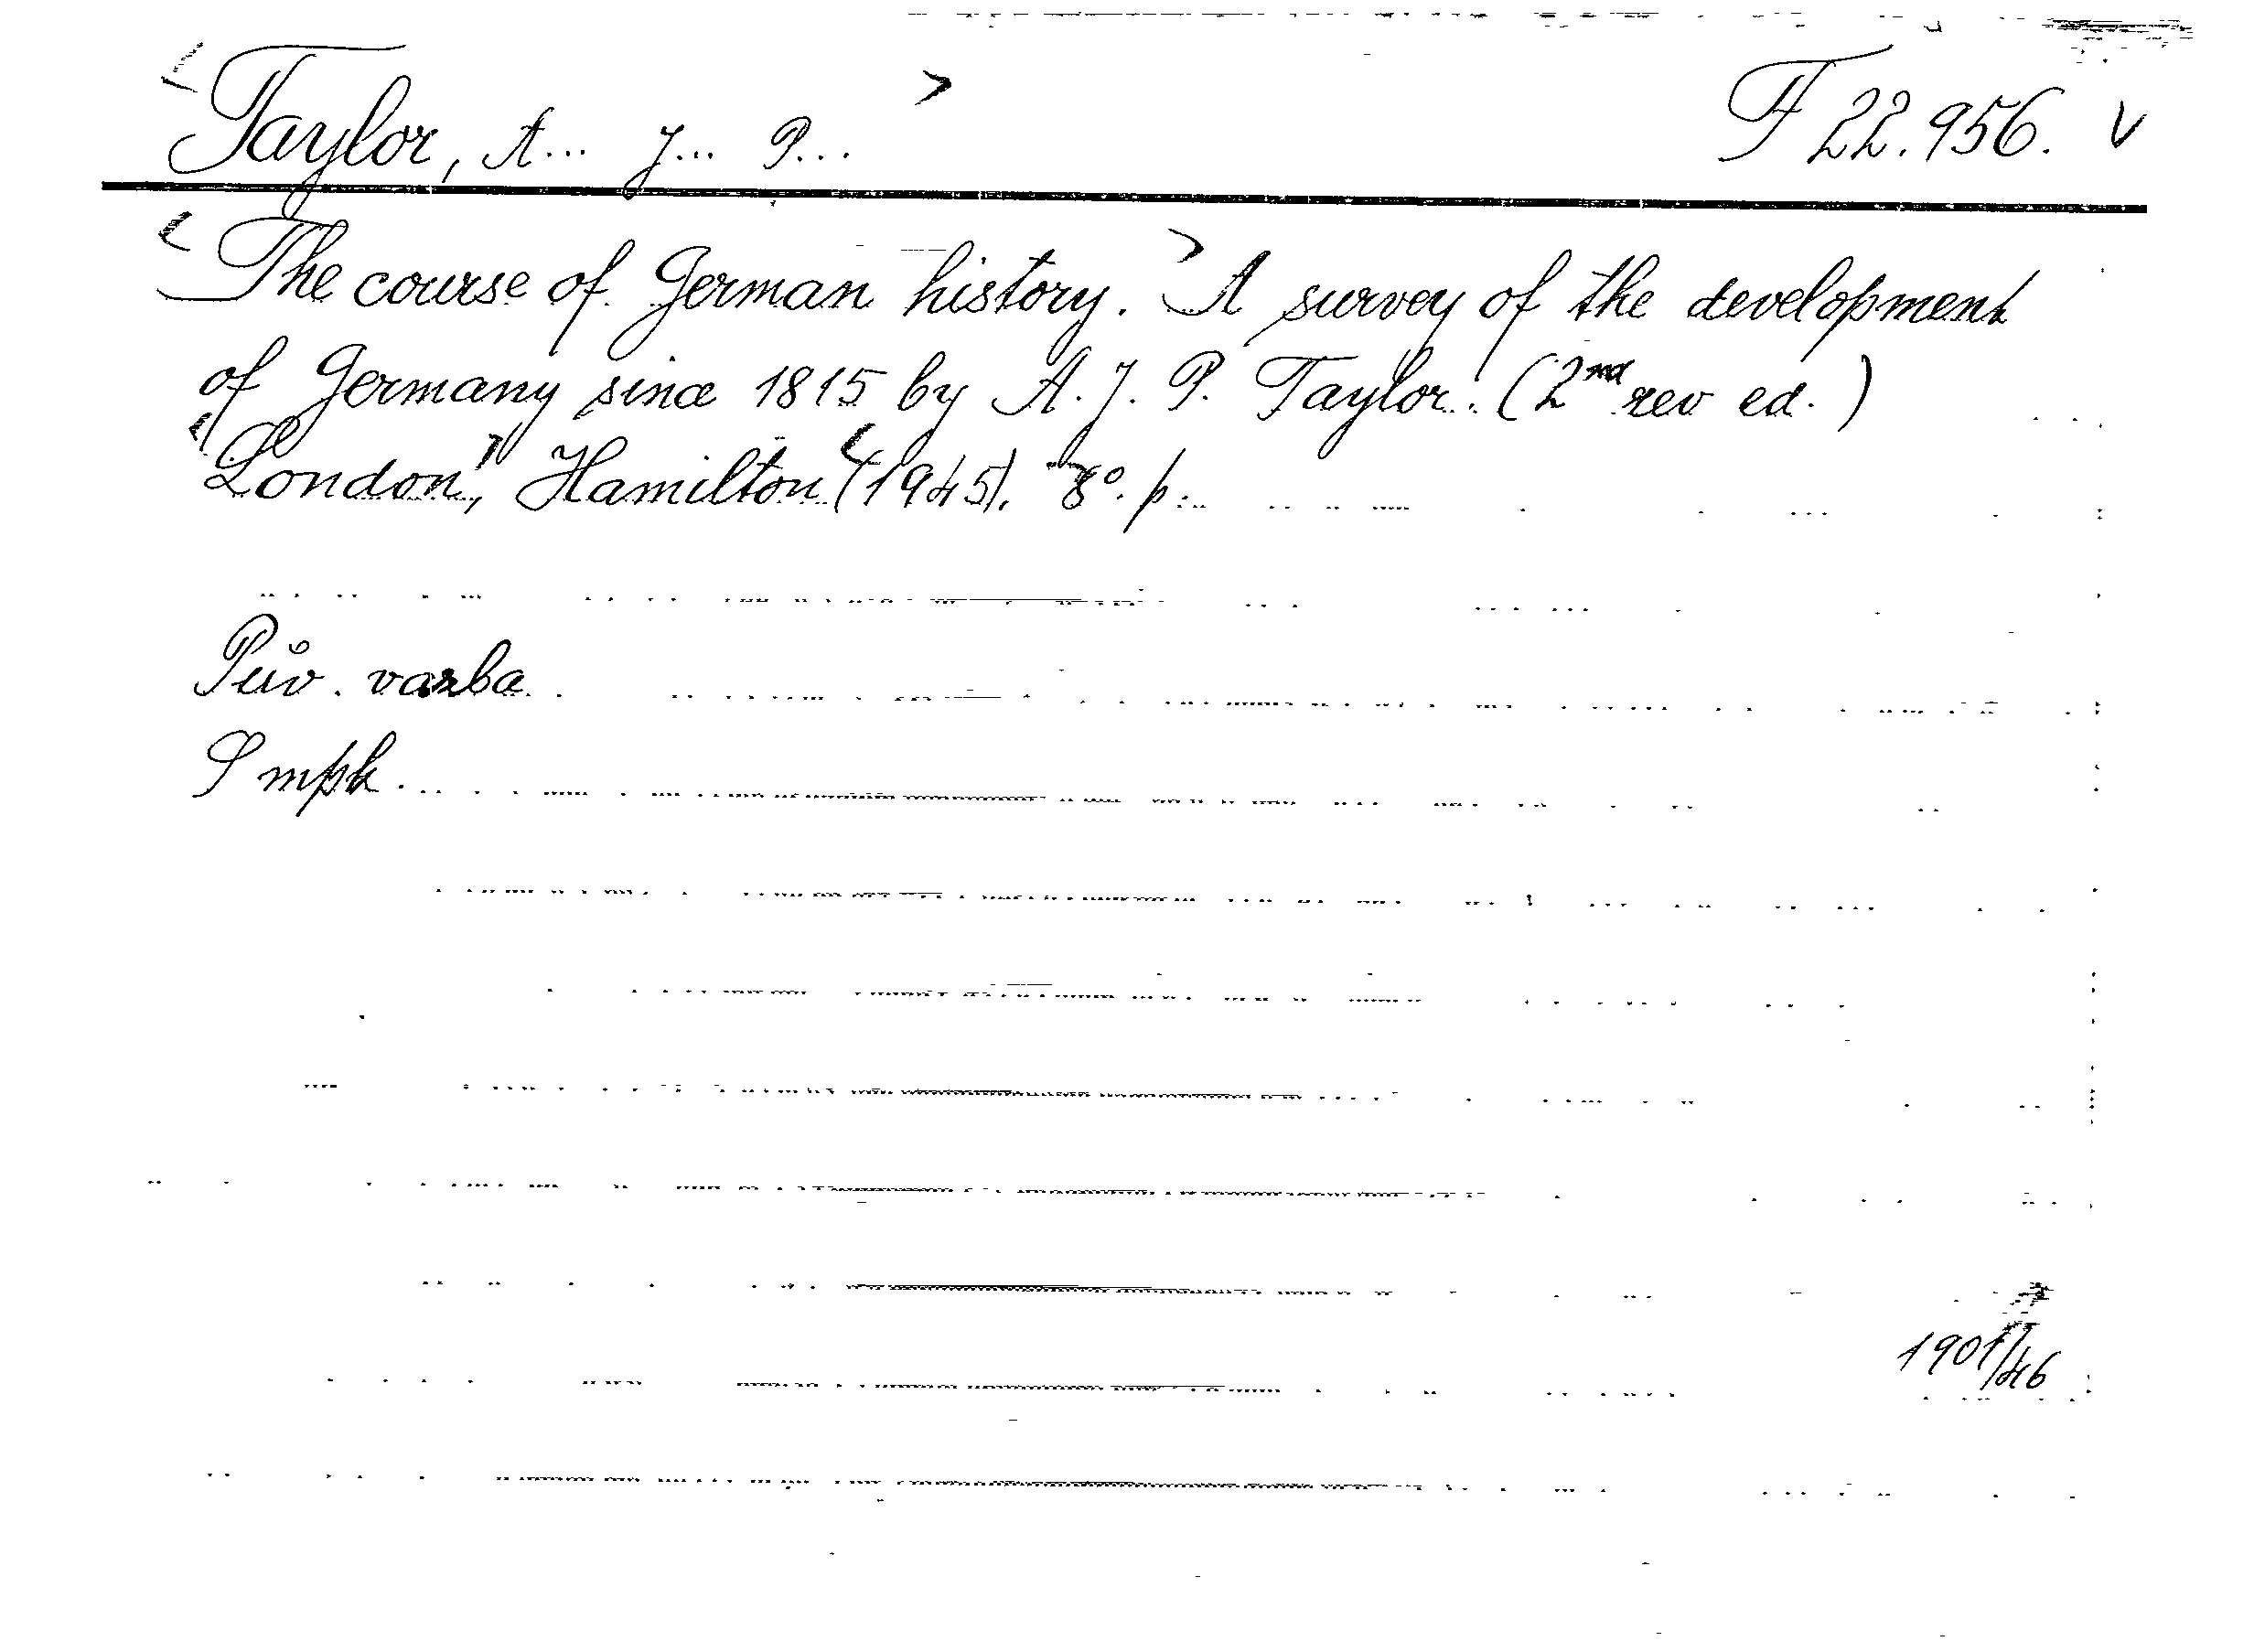 Taylor, A... J... P... F 22.956. v
The course of German history. A survey of the development
of Germany since 1815 by A. J. P. Taylor. (2nd rev ed.)
London, Hamilton (1945). 8°. p.
Pův. vazba
S mpk.
1901/46